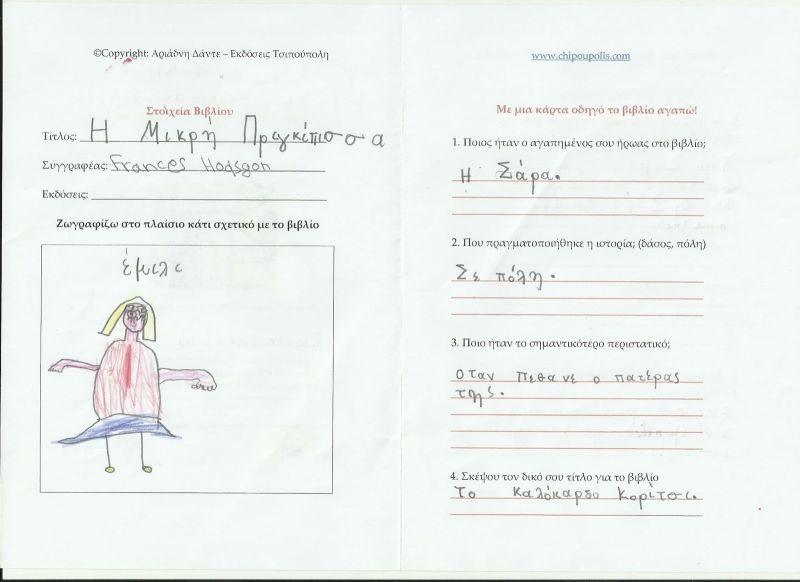 ©Copyright: Αριάδνη Δάντε – Εκδόσεις Τσιπούπολη
Στοιχεία Βιβλίου
Τίτλος: Η Μικρή Πριγκίπισσα
Συγγραφέας: Frances Hodsgon
Εκδόσεις:
Ζωγραφίζω στο πλαίσιο κάτι σχετικό με το βιβλίο
έμιλι
www.chipoupolis.com
Με μια κάρτα οδηγό το βιβλίο αγαπώ!
1. Ποιος ήταν ο αγαπημένος σου ήρωας στο βιβλίο;
Η Σάρα.
2. Που πραγματοποιήθηκε η ιστορία; (δάσος, πόλη)
Σε πόλη.
3. Ποιο ήταν το σημαντικότερο περιστατικό;
Οταν πεθανε ο πατέρας
της.
4. Σκέψου τον δικό σου τίτλο για το βιβλίο
Το καλόκαρδο κορίτσι.